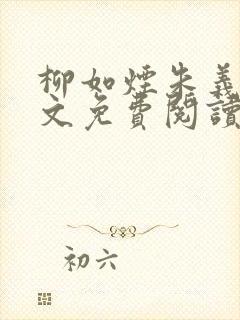 柳如煙朱義
文免費閱讀
初六